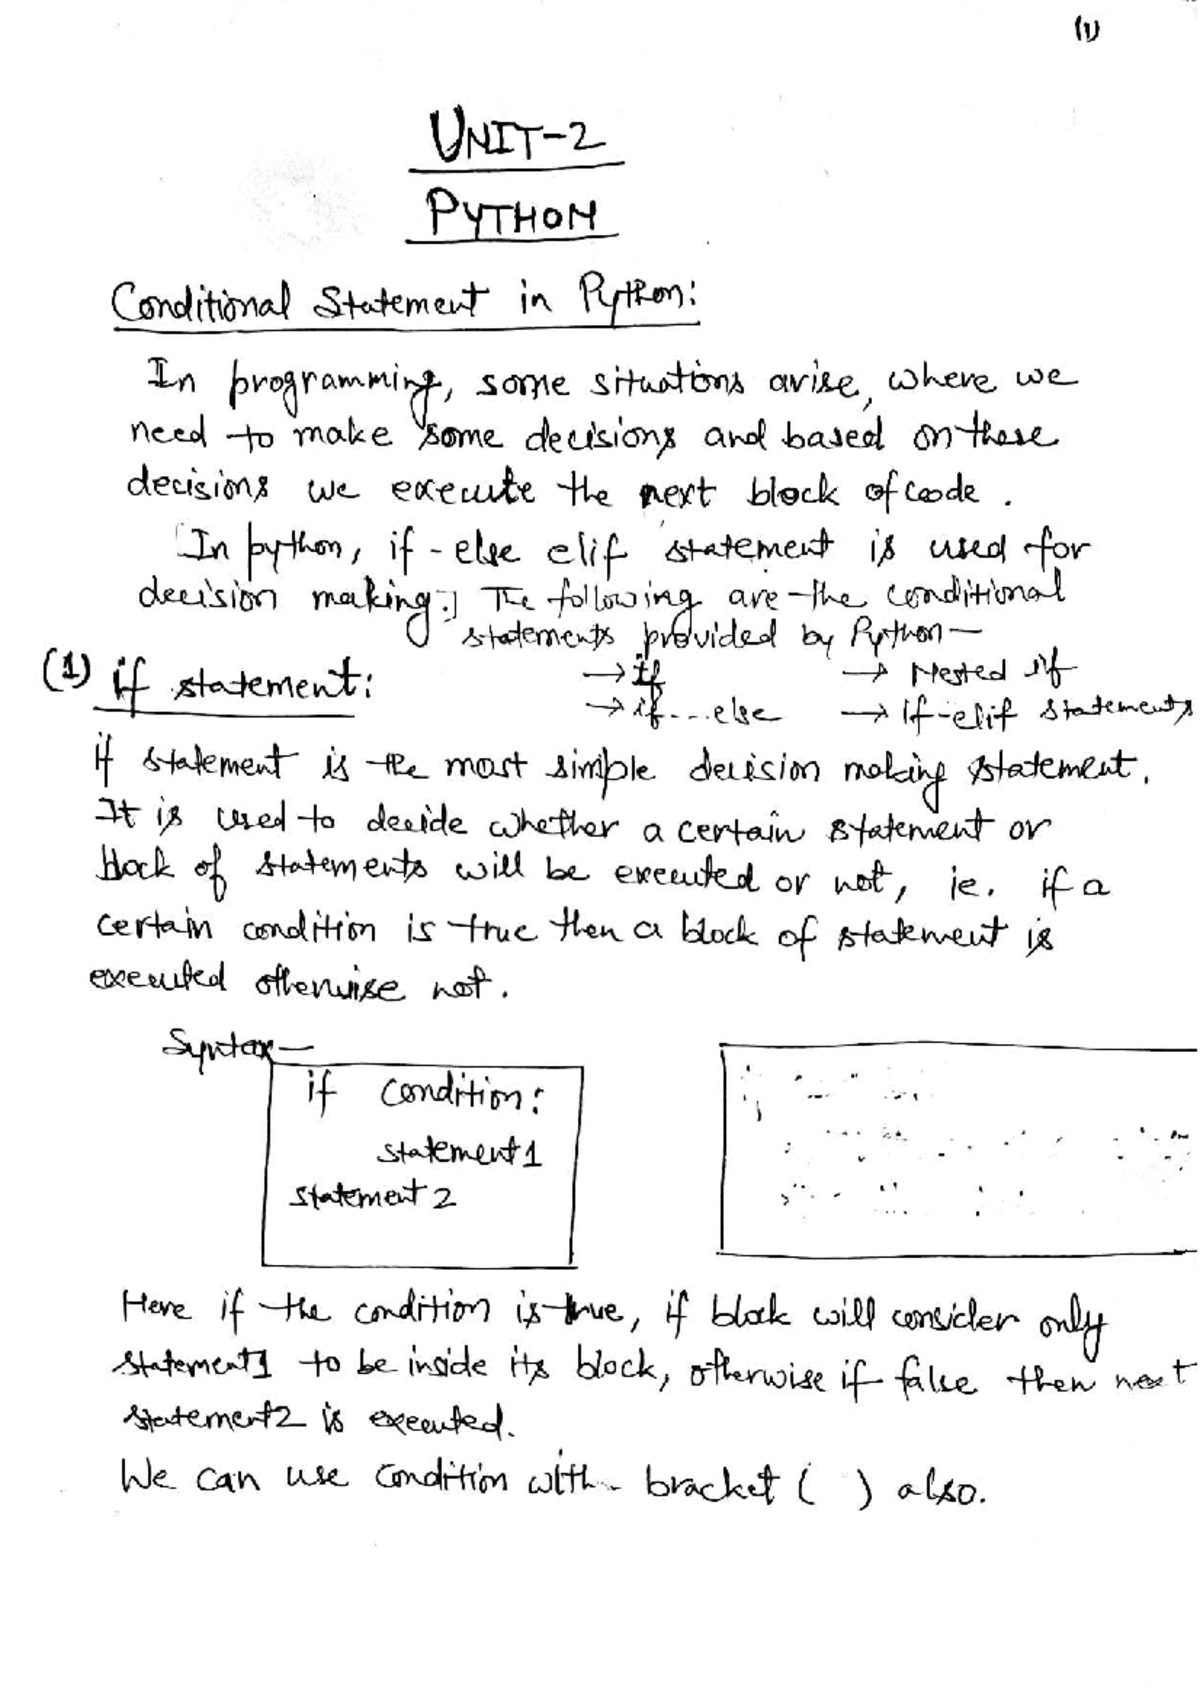 (1)
UNIT-2
PYTHON
Conditional Statement in Python:
In programming, some situations arise, where we
need to make some decisions and based on these
decisions we execute the next block of code.
In python, if-else elif statement is used for
decision making.] The following are the conditional
statements provided by Python—
→ if → Nested if
→ if...else → if-elif statements
(1) if statement:
if statement is the most simple decision making statement.
It is used to decide whether a certain statement or
block of statements will be executed or not, ie. if a
certain condition is true then a block of statement is
executed otherwise not.
Syntax—
if condition:
statement1
statement 2
Here if the condition is true, if block will consider only
statement1 to be inside its block, otherwise if false then next
statement2 is executed.
We can use condition with bracket ( ) also.